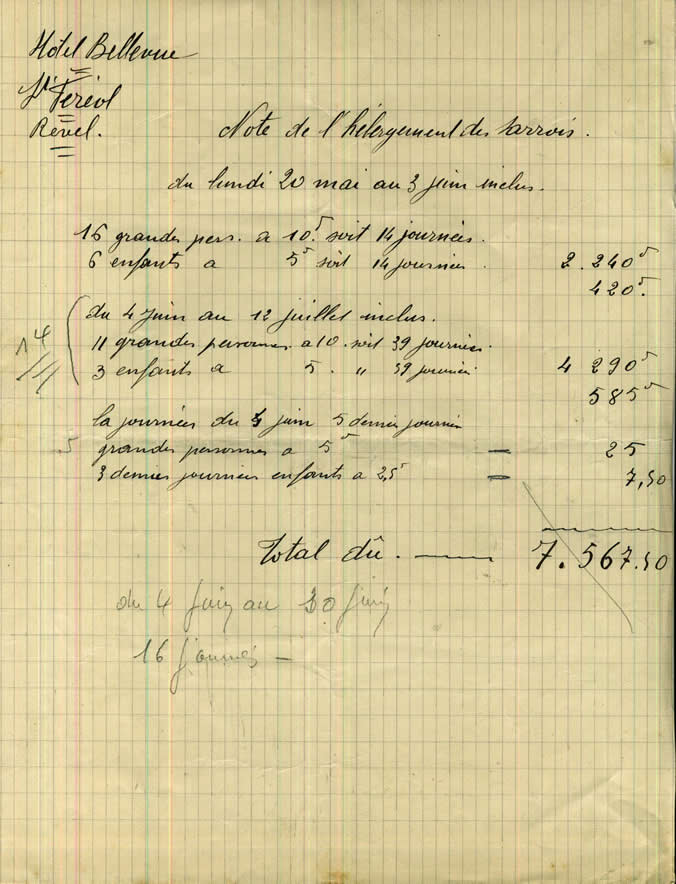 Hôtel Bellevue
St Feréol
Revel.
Note de l'hébergement des Sarrois.
du lundi 20 mai au 3 juin inclus.
16 grandes pers. a 10.F soit 14 journées.
6 enfants a 5F soit 14 journées 2.240F
420F.
du 4 juin au 12 juillet inclus.
14
11 grandes personnes a 10. soit 39 journées.
3 enfants a 5. " 39 journées 4 290F
585F
la journées du 4 juin 5 demie journée
5 grandes personnes a 5F — 25
3 demies journées enfants a 2,5F = 7,50
Total dû. — 7.567.50
du 4 Juin au 30 Juin
16 journées —